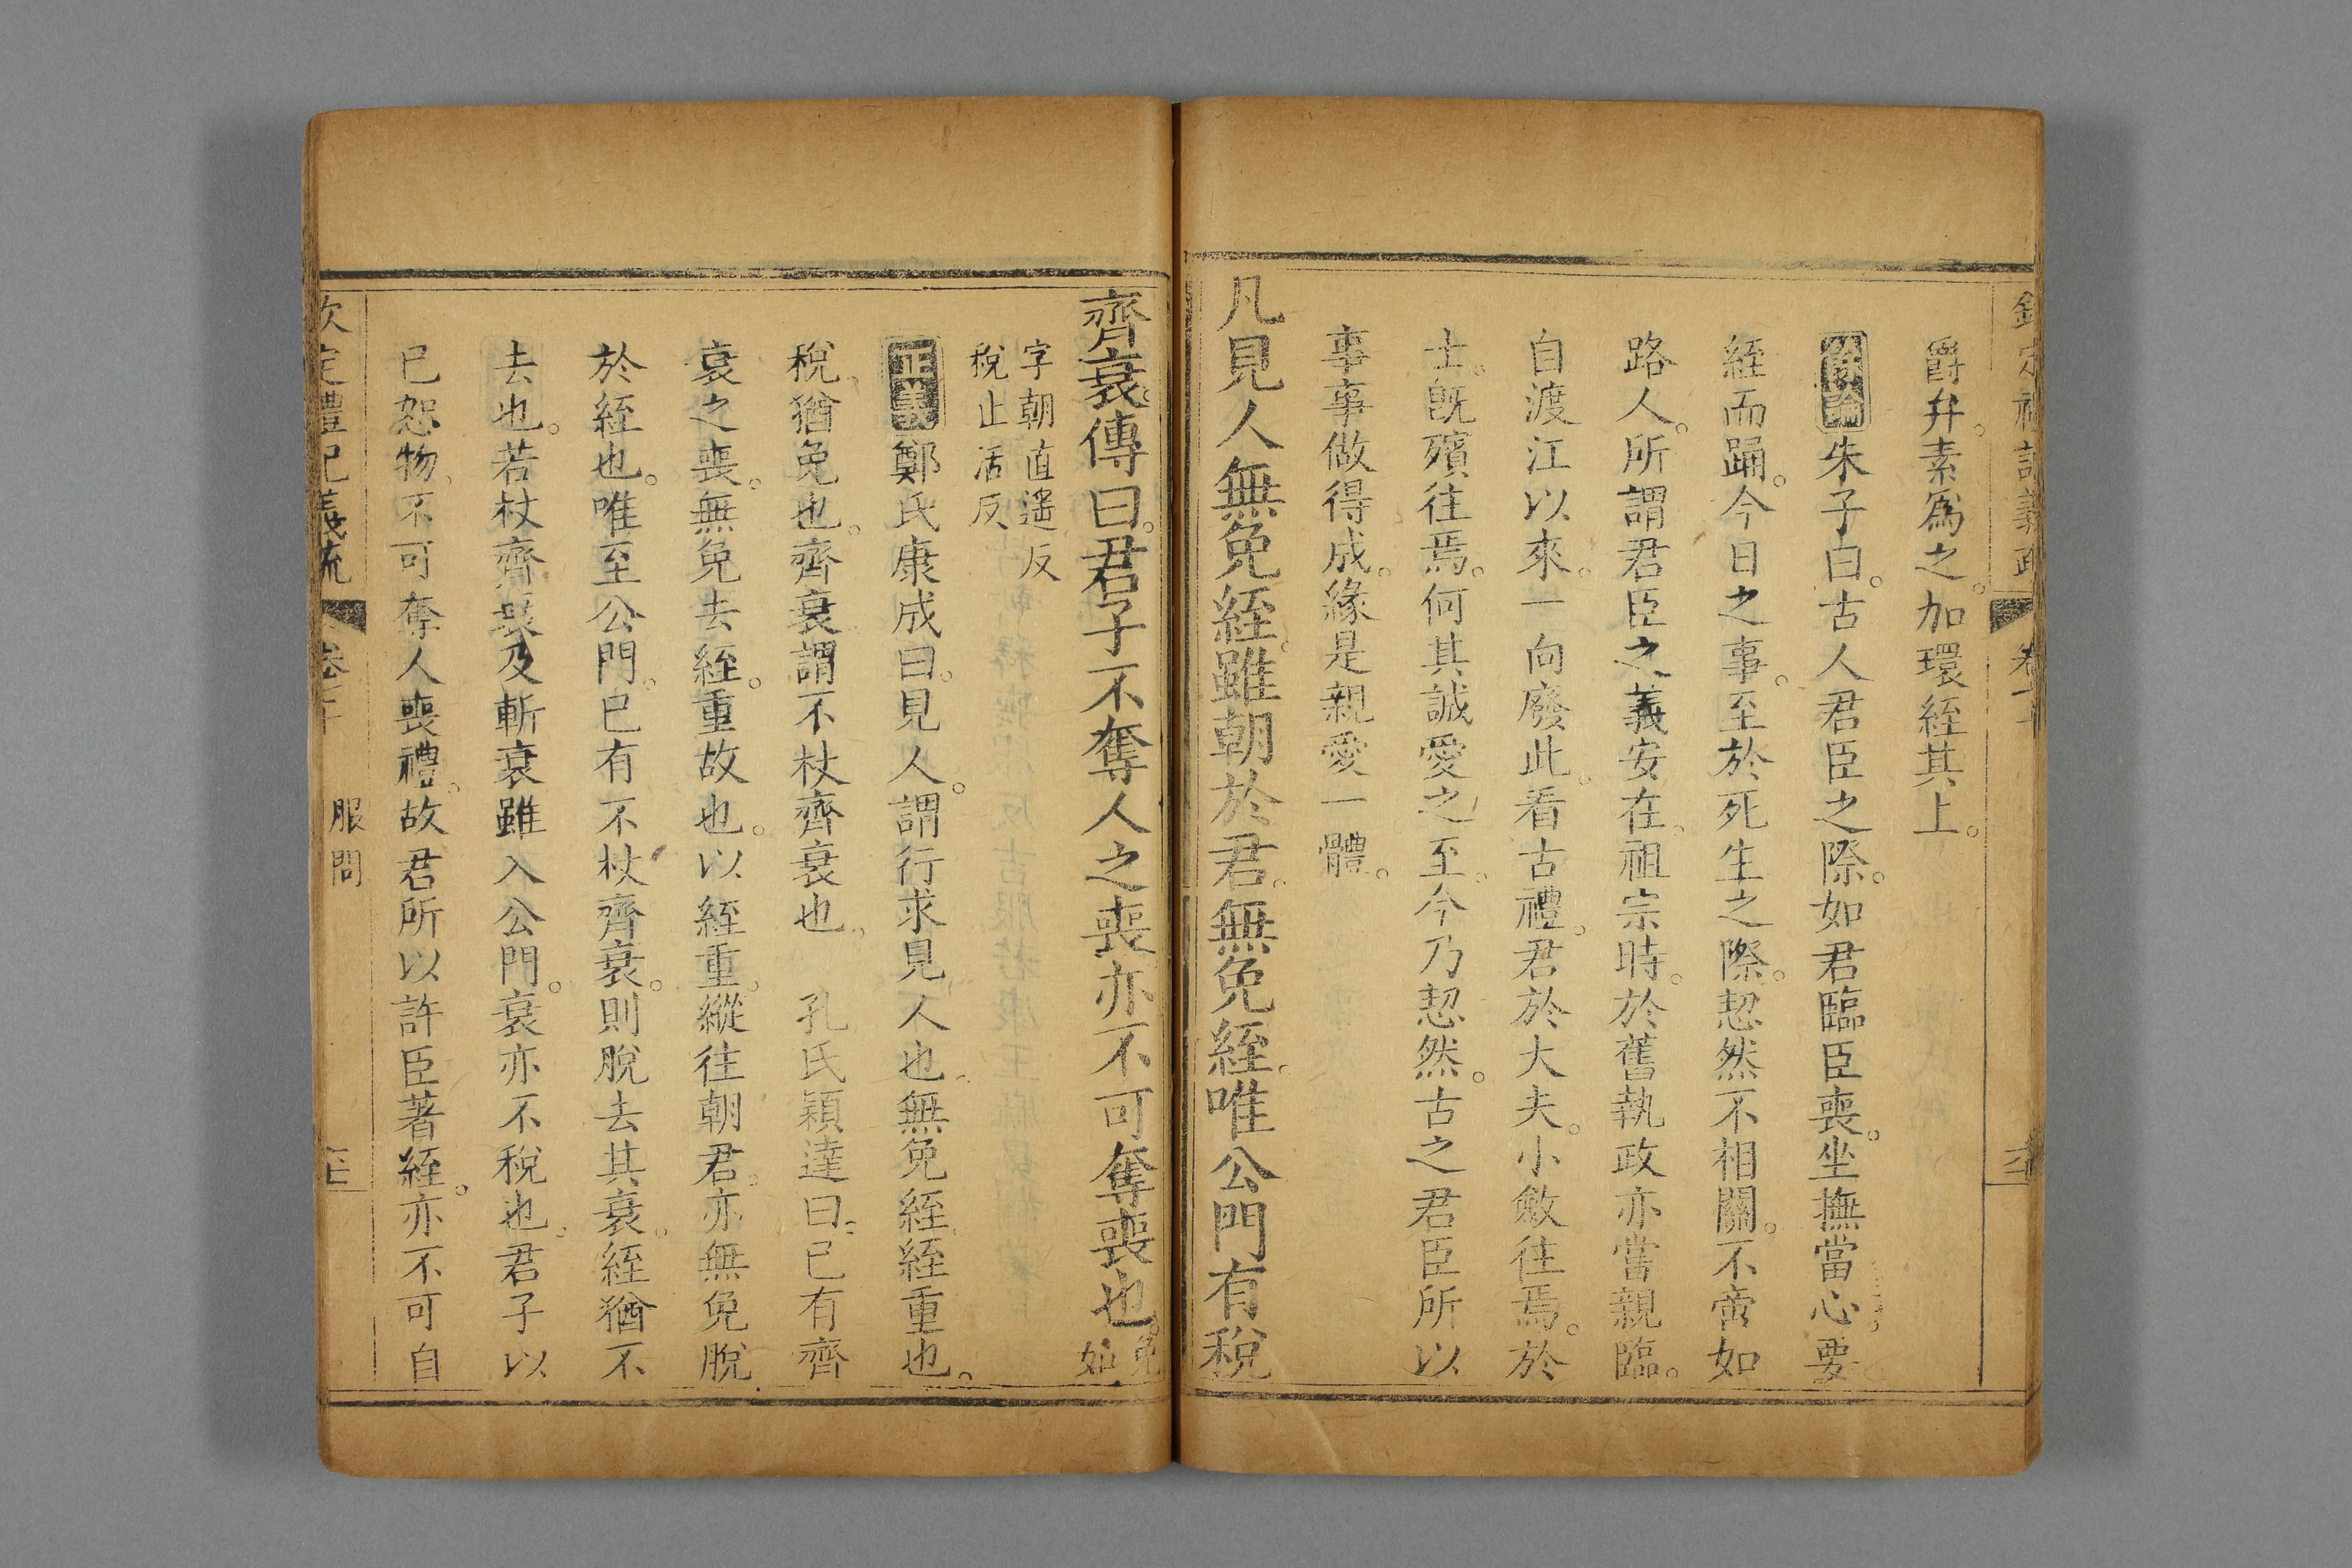 爵弁。素爲之。加環絰其上。
餘論朱子曰。古人君臣之際。如君臨臣喪。坐撫當心。要
絰而踊。今日之事。至於死生之際。恝然不相關。不啻如
路人。所謂君臣之義安在。祖宗時。於舊執政亦嘗親臨。
自渡江以來。一向廢此。看古禮。君於大夫。小斂往焉。於
士。旣殯往焉。何其誠愛之至。今乃恝然。古之君臣所以
事事做得成。緣是親愛一體。
凡見人無免絰。雖朝於君。無免絰。唯公門有稅
齊衰。傳曰。君子不奪人之喪亦不可奪喪也。免如
字朝直遙反
稅止活反
正義鄭氏康成曰。見人。謂行求見人也。無免絰。絰重也。
稅。猶免也。齊衰謂不杖齊衰也。 孔氏穎達曰。已有齊
衰之喪。無免去絰。重故也。以絰重。縱往朝君。亦無免脫
於絰也。唯至公門。已有不杖齊衰。則脫去其衰。絰猶不
去也。若杖齊衰及斬衰雖入公門。衰亦不稅也。君子以
已恕物。不可奪人喪禮。故君所以許臣著絰。亦不可自
欽定禮記義疏 卷 服問